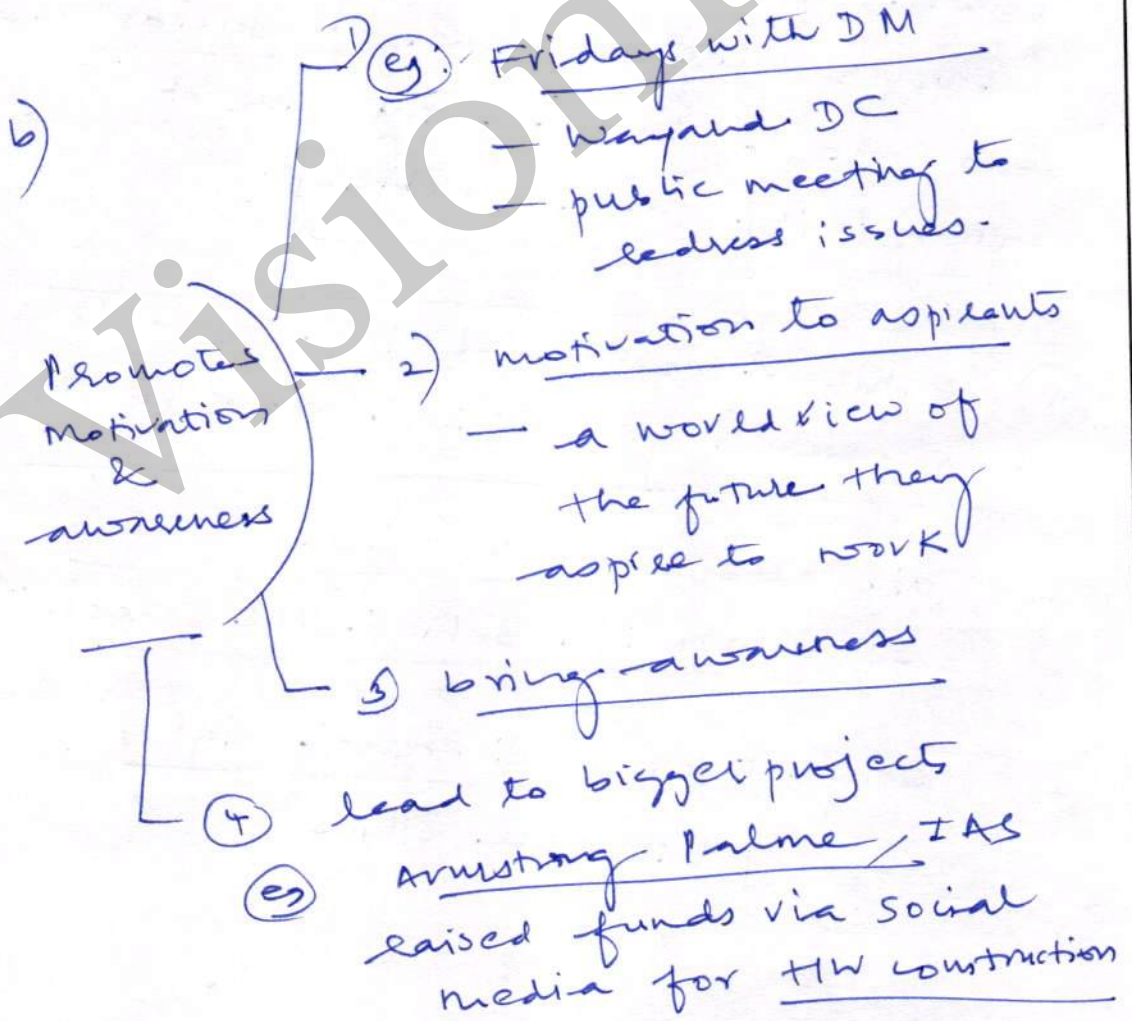 b)
Promotes
motivation
&
awareness
1) eg: Fridays with DM
- Wayanad DC
- public meeting to
redress issues.
2) motivation to aspirants
- a world view of
the future they
aspire to work
3) bring awareness
4 lead to bigger projects
eg Armstrong Palme, IAS
raised funds via social
media for HW construction
Vision